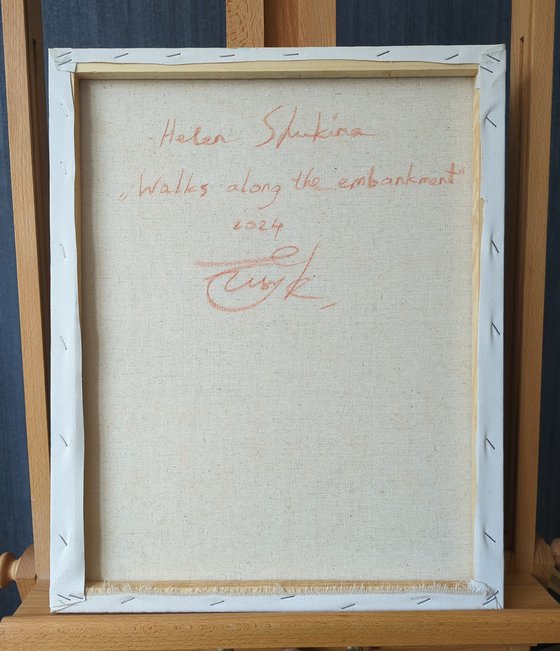 Helen Shukina
„Walks along the embankment"
2024